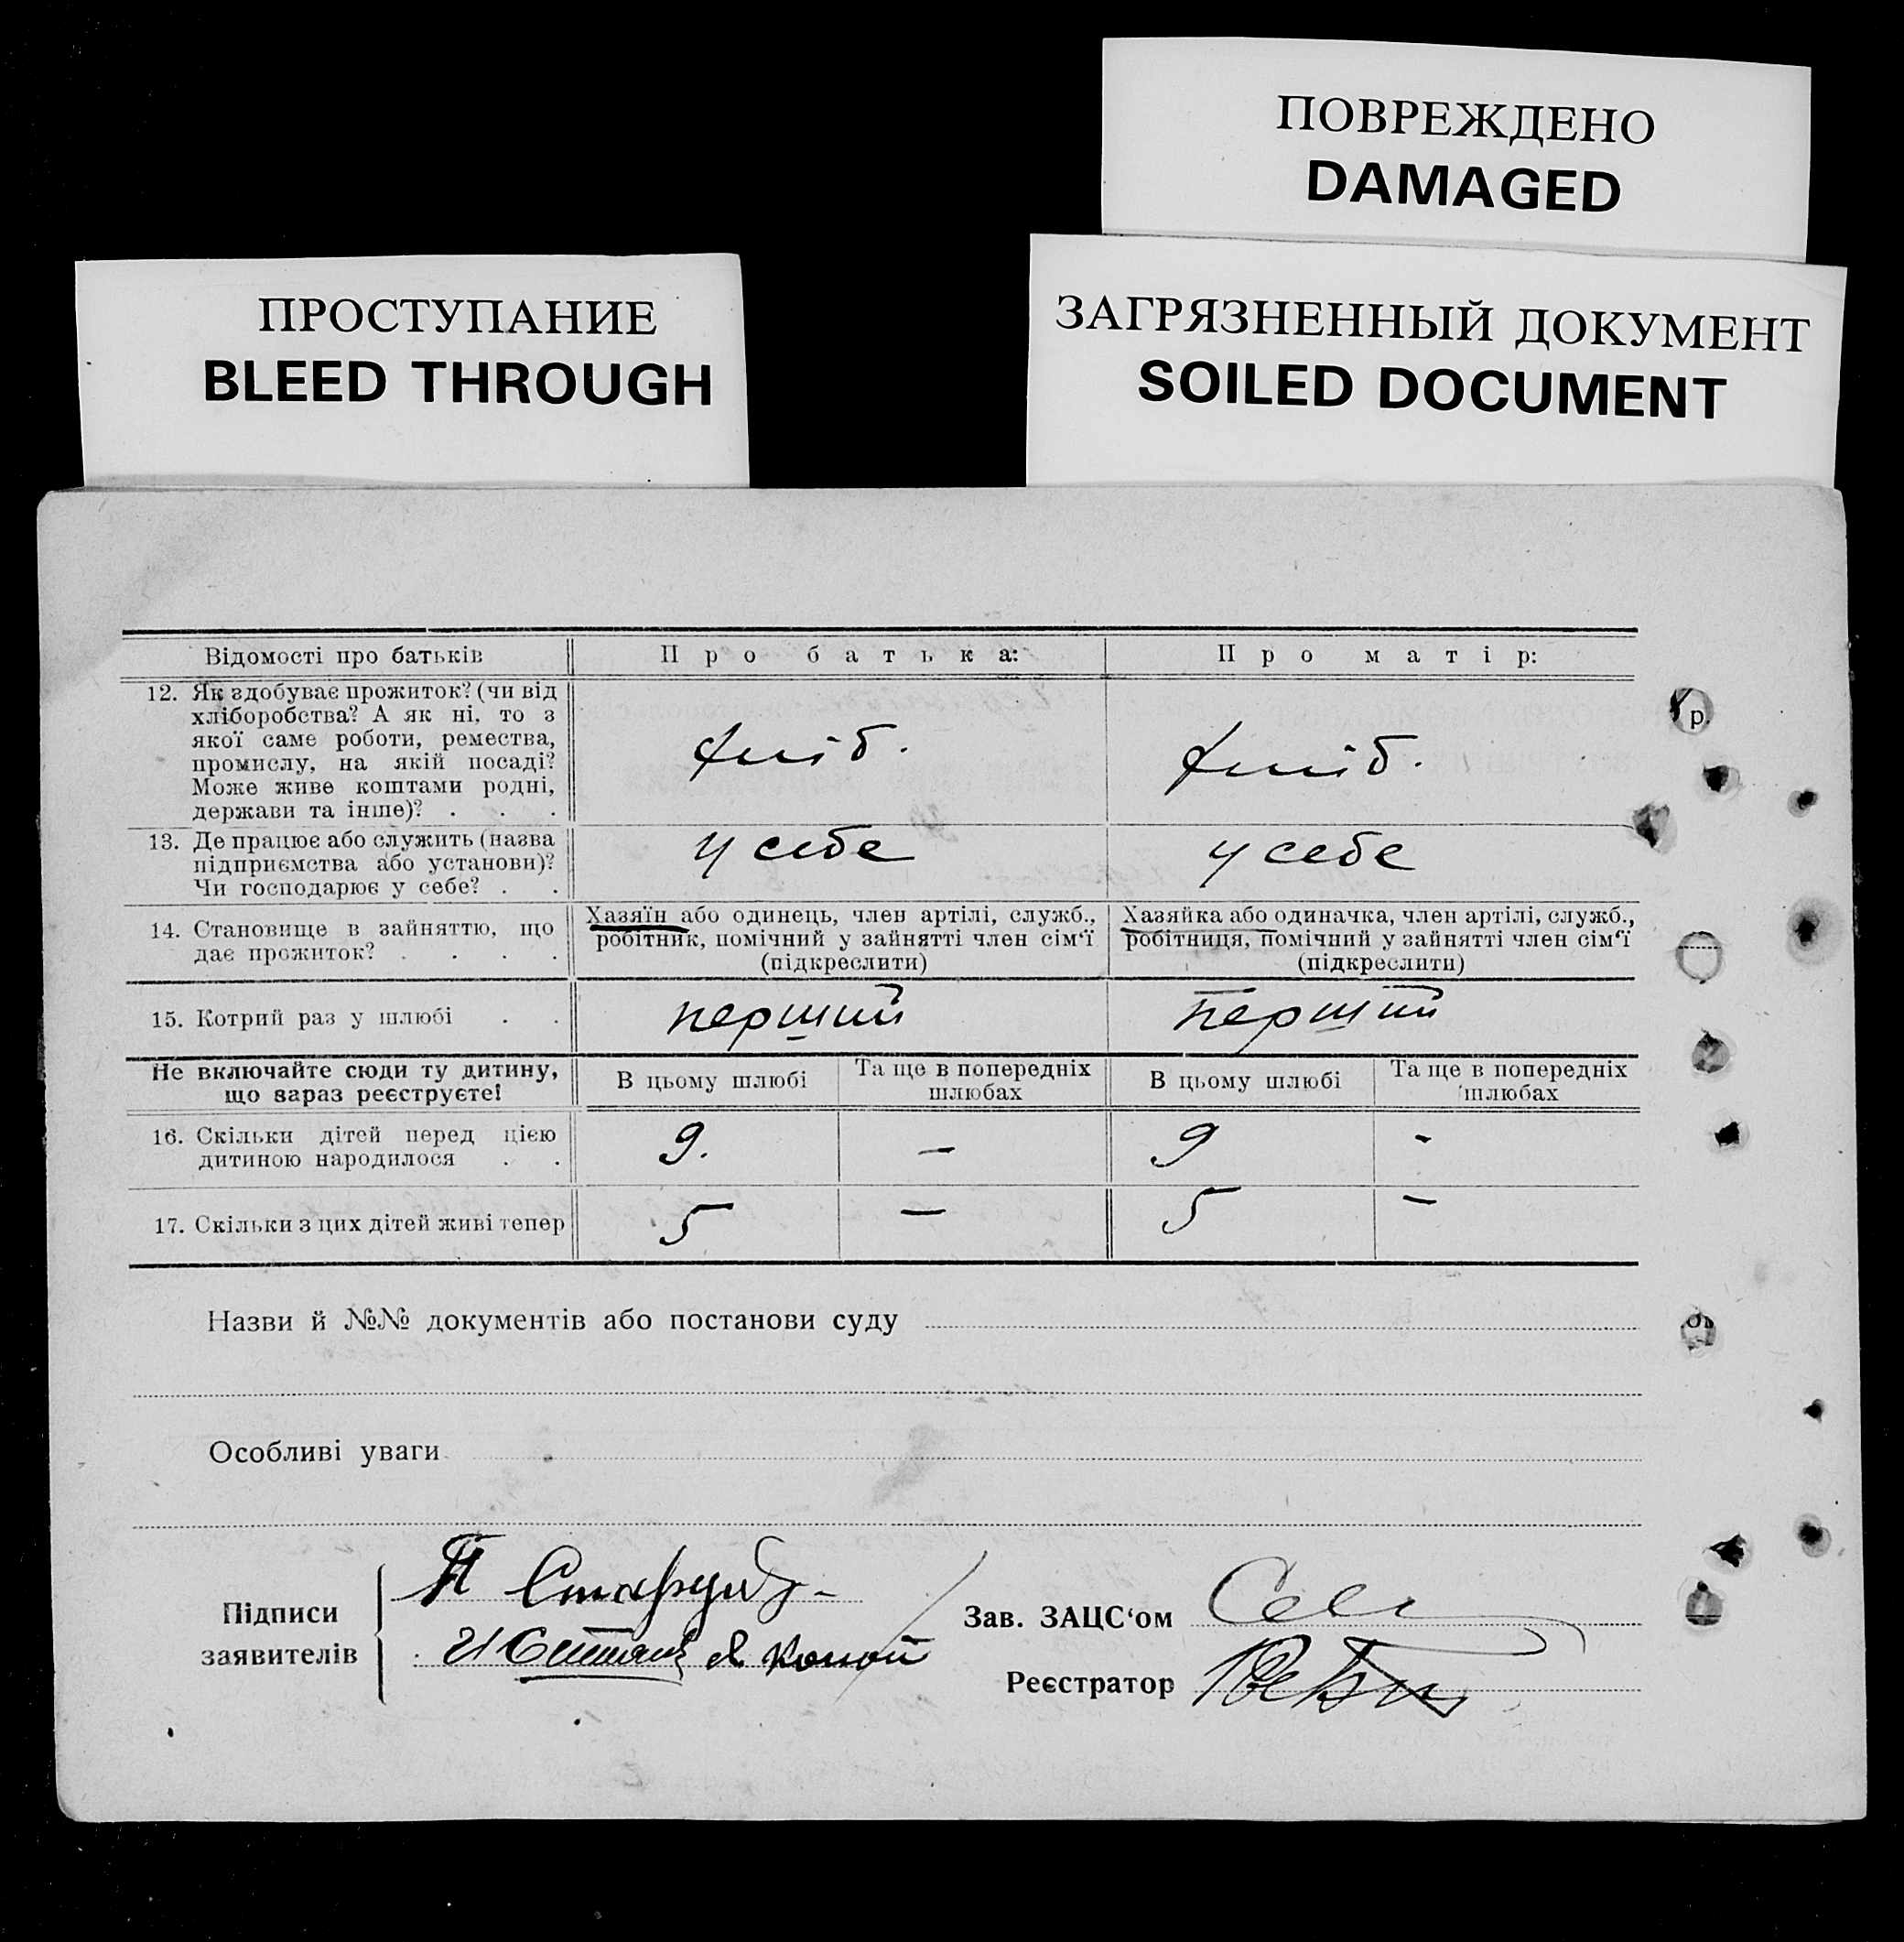 ПОВРЕЖДЕНО
DAMAGED
ПРОСТУПАНИЕ
BLEED THROUGH
ЗАГРЯЗНЕННЫЙ ДОКУМЕНТ
SOILED DOCUMENT
Відомості про батьків
Про батька:
Про матір:
12. Як здобуває прожиток? (чи від
хліборобства? А як ні, то з
якої саме роботи, ремества,
промислу, на якій посаді?
Може живе коштами родні,
держави та інше)? . . .
хліб.
хліб.
13. Де працює або служить (назва
підприємства або установи)?
Чи господарює у себе? . .
у себе
у себе
14. Становище в зайняттю, що
дає прожиток? . . . .
Хазяїн або одинець, член артілі, служб.,
робітник, помічний у зайнятті член сім‘ї
(підкреслити)
Хазяйка або одиначка, член артілі, служб.,
робітниця, помічний у зайнятті член сім‘ї
(підкреслити)
15. Котрий раз у шлюбі . .
перший
перший
Не включайте сюди ту дитину,
що зараз реєструєте!
В цьому шлюбі
Та ще в попередніх
шлюбах
В цьому шлюбі
Та ще в попередніх
шлюбах
16. Скільки дітей перед цією
дитиною народилося . .
9.
—
9
-
17. Скільки з цих дітей живі тепер
5
—
5
—
Назви й №№ документів або постанови суду
Особливі уваги
Підписи
заявителів
П
Зав. ЗАЦС‘ом
Реєстратор
р.